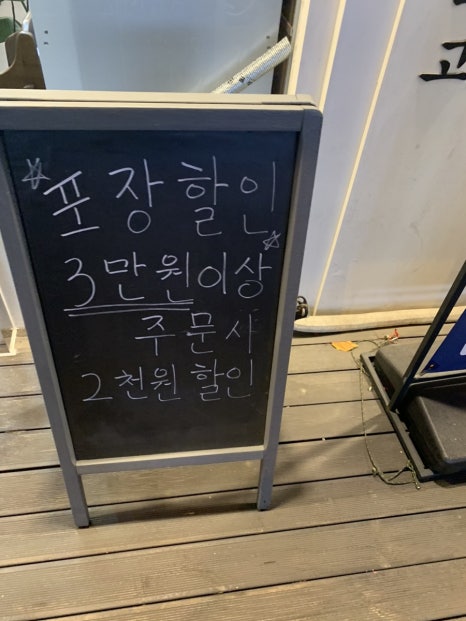 ☆포장할인☆
3만원이상
주문시
2천원 할인